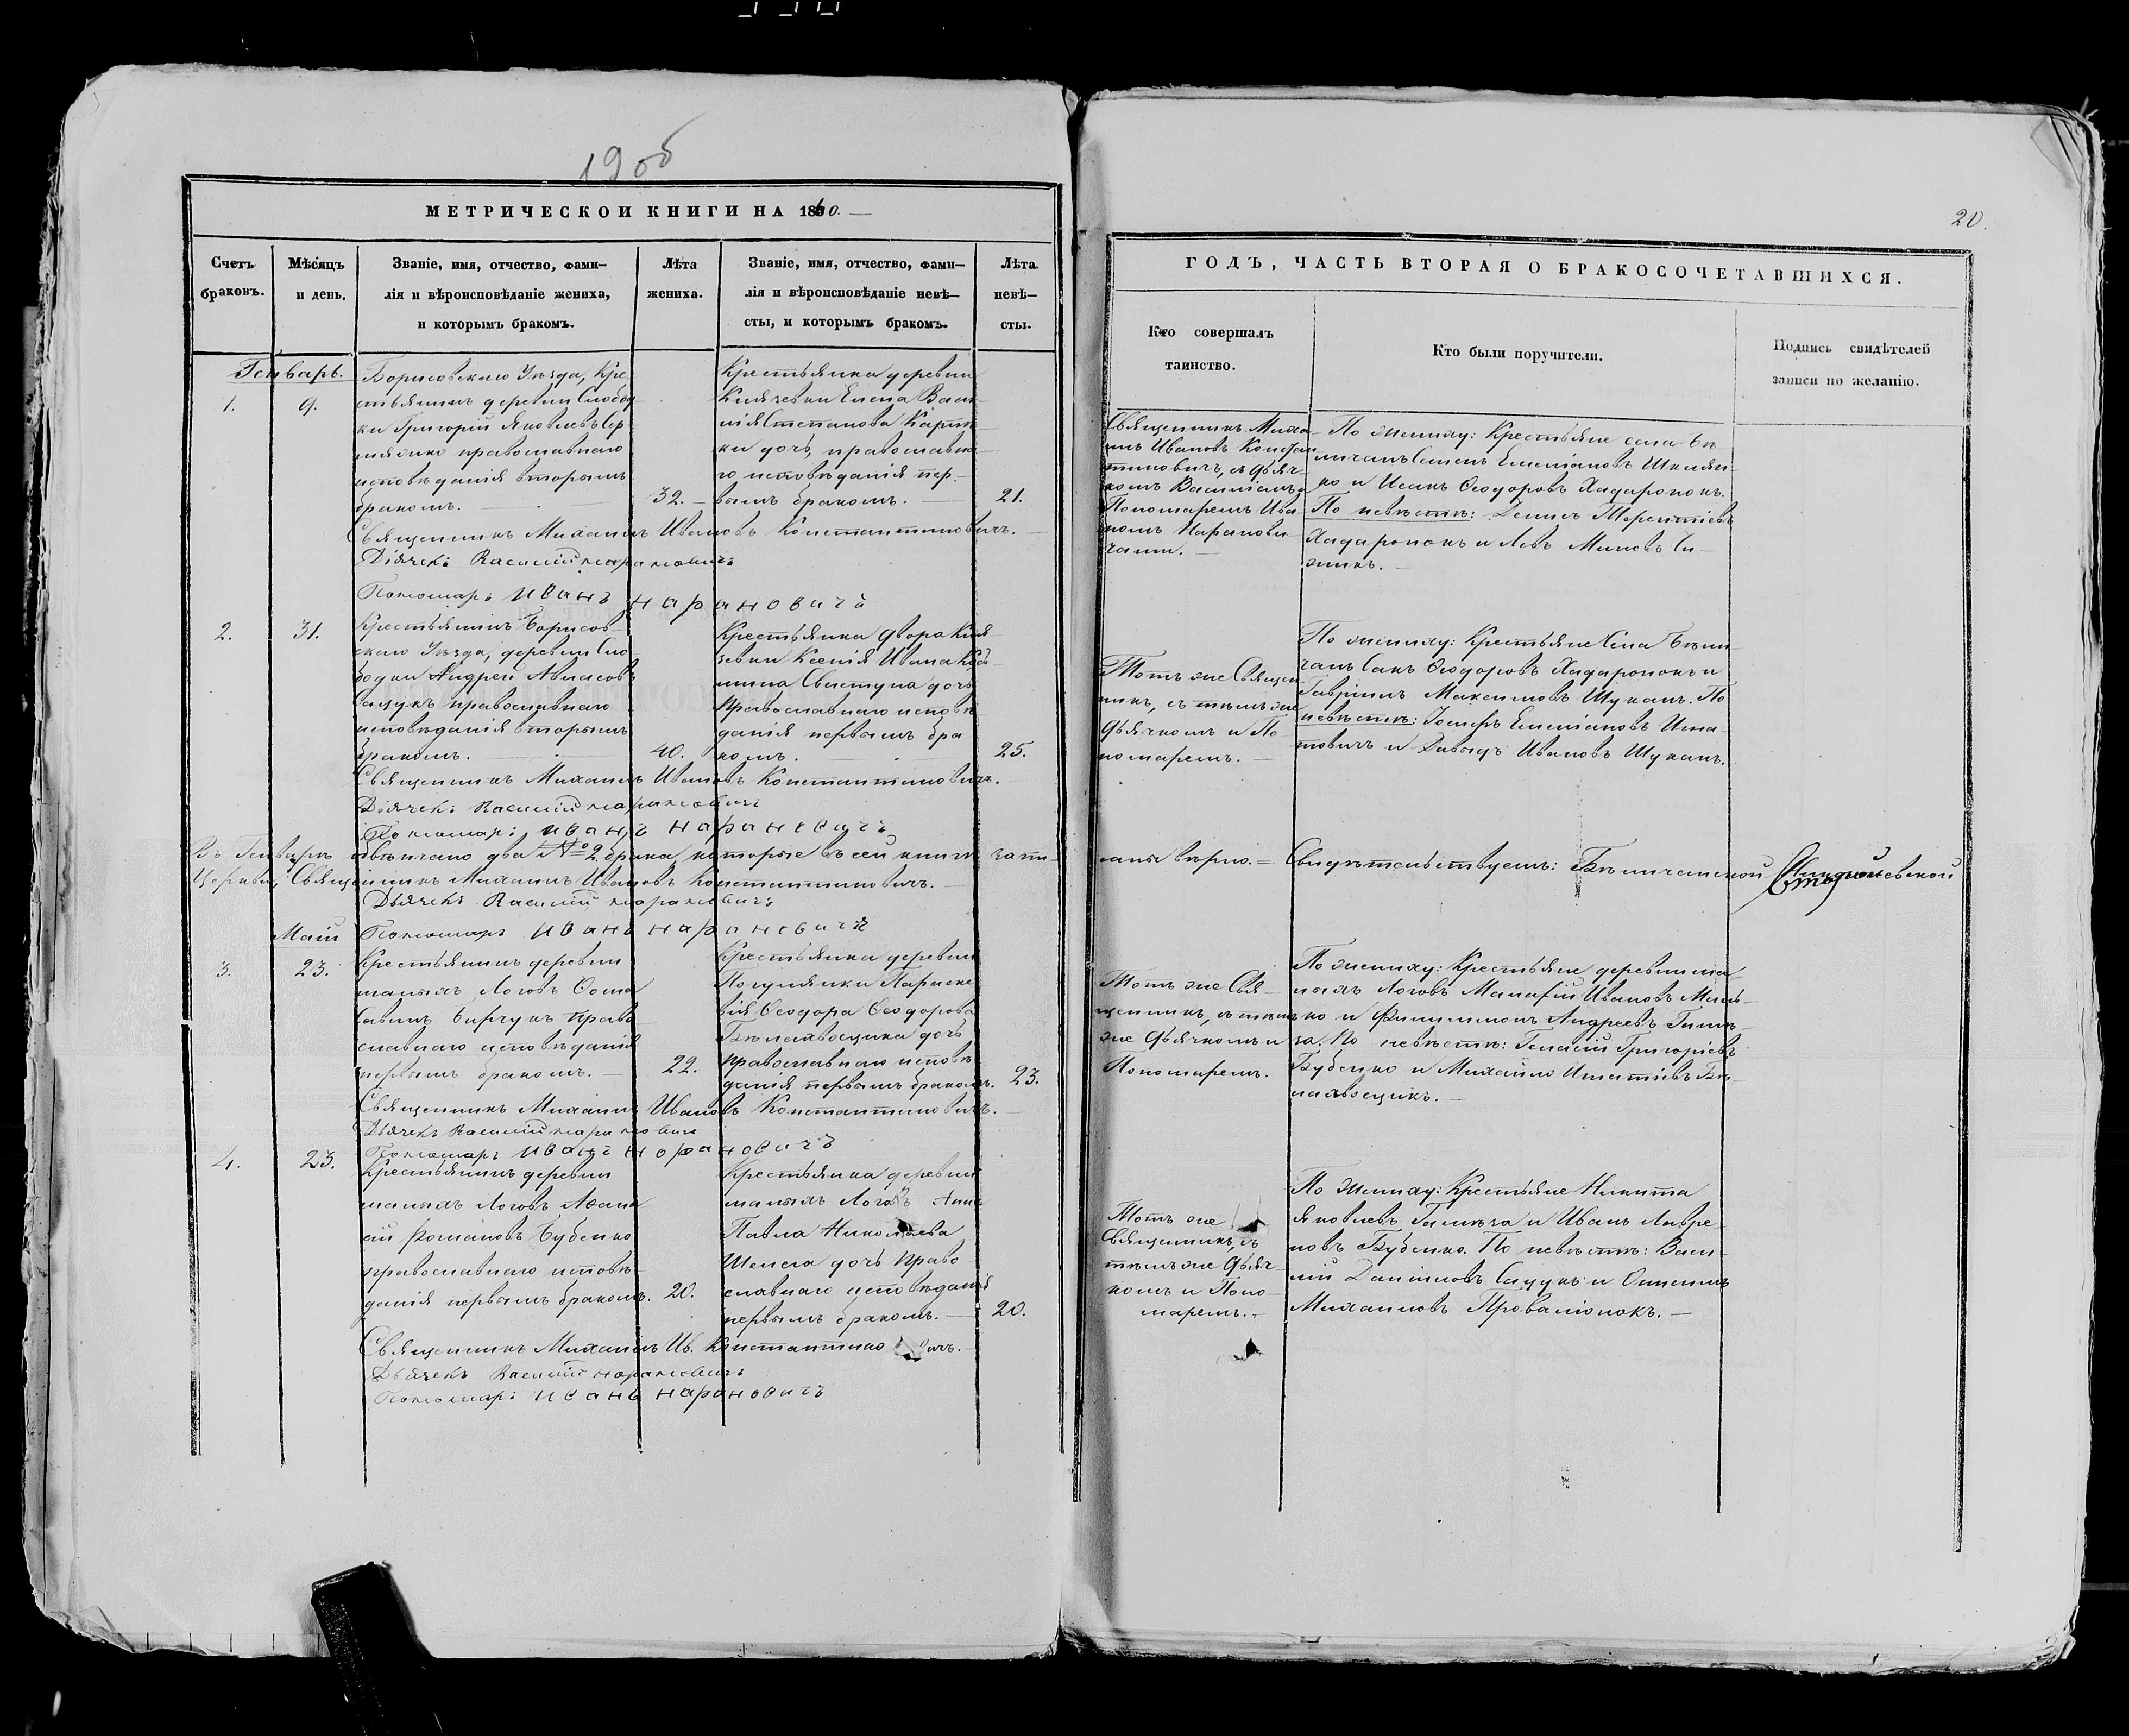 190б
МЕТРИЧЕСКОЙ КНИГИ НА 1860.
Счетъ браковъ.
Мѣсяцъ и день.
Званіе, имя, отчество, фами—
лія и вѣроисповѣданіе жениха,
и которымъ бракомъ.
Лѣта
жениха.
Званіе, имя, отчество, фами—
лія и вѣроисповѣданіе невѣ—
сты, и которымъ бракомъ.
Лѣта
невѣ—
сты.
Генварь.
1.
9.
Борисовскаго Уѣзда, Кре
стьянинъ деревни Слобод
ки Григорій Яковлевъ
православнаго
исповѣданія вторымъ
бракомъ.
32.
Крестьянка деревни
Елена Васи
лія Степанова
дочь, православна
го исповѣданія пер-
вымъ бракомъ.
21.
Священникъ Михаилъ Ивановъ Константиновичъ.
Дьячекъ Василій Нарановичъ
Пономарь Иванъ Нарановичъ
2.
31.
Крестьянинъ Борисов
скаго Уѣзда, деревни Сло
бодки Андрей
Сацукъ православнаго
исповѣданія вторымъ
бракомъ.
40.
Крестьянка двора Кня
зевки Ксенія Ивана
Свистуна дочь
Православнаго исповѣ
данія первымъ бра
комъ.
25.
Священникъ Михаилъ Ивановъ Константиновичъ.
Дьячекъ Василій Нарановичъ
Пономарь Иванъ Нарановичъ
Въ Генварѣ обвѣнчано два № 2 брака, которые въ сей книгѣ запи—
Церкви, Священникъ Михаилъ Ивановъ Константиновичъ.
Дьячекъ Василій Нарановичъ
Пономарь Иванъ Нарановичъ
Маій
3.
23.
Крестьянинъ деревни
малыхъ Логовъ Ѳома
Савинъ Бирчукъ Право
славнаго исповѣданія
первымъ бракомъ.
22.
Крестьянка деревни
Погулянки Параске
вія Ѳеодора Ѳеодорова
Бѣлахвощика дочь
Православнаго исповѣ
данія первымъ бракомъ.
23.
Священникъ Михаилъ Ивановъ Константиновичъ.
Дьячекъ Василій Нарановичъ
Пономарь Иванъ Нарановичъ
4.
23.
Крестьянинъ деревни
малыхъ Логовъ Аѳана
сій Романовъ Бубенко
православнаго исповѣ
данія первымъ бракомъ.
20.
Крестьянка деревни
малыхъ Логовъ Анна
Павла Николаева
Шелега дочь Право
славнаго исповѣданія
первымъ бракомъ.
20.
Священникъ Михаилъ Ив. Константиновичъ.
Дьячекъ Василій Нарановичъ
Пономарь Иванъ Нарановичъ
20.
ГОДЪ, ЧАСТЬ ВТОРАЯ О БРАКОСОЧЕТАВШИХСЯ.
Кто совершалъ
таинство.
Кто были поручители.
Подпись свидѣтелей
записи по желанію.
Священникъ Миха
илъ Ивановъ Констан
тиновичъ, съ Дьяч-
комъ Василіемъ и
Пономаремъ Ива
номъ Наранови
чами.
По жениху: Крестьяне села Бѣ
личанъ Семенъ Емеліановъ Шклян-
ко и Исакъ Ѳеодоровъ Хадаронокъ.
По невѣстѣ: Денисъ Терентіевъ
Хадаронокъ и Левъ Миновъ
Тотъ же Священ
никъ, съ тѣмъ же
Дьячкомъ и По
номаремъ.
По жениху: Крестьяне Села Бѣли-
чанъ Сакъ Ѳеодоровъ Хадаронокъ и
Гавріилъ Максимовъ Шуканъ. По
невѣстѣ: Іосифъ Емеліановъ Игна
товичъ и Давыдъ Ивановъ Шуканъ.
саны вѣрно. = Свидѣтельствуемъ: Бѣличанской
Тотъ же Свя—
щенникъ, съ тѣмъ
же Дьячкомъ и
Пономаремъ.
По жениху: Крестьяне деревни ма
лыхъ Логовъ Макарій Ивановъ
ко и Филимонъ Андреевъ
По невѣстѣ: Геласій Григоріевъ
Бубенко и Михайло Игнатіевъ Бѣ-
лахвощикъ.
Тотъ же
Священникъ, съ
тѣмъ же Дьяч-
комъ и Поно-
маремъ.
По Жениху: Крестьяне Никита
Яковлевъ и Иванъ Лавре-
новъ Бубенко. По невѣстѣ: Васи-
лій Даніиловъ Сацукъ и Онисимъ
Михаиловъ Проваліонокъ.